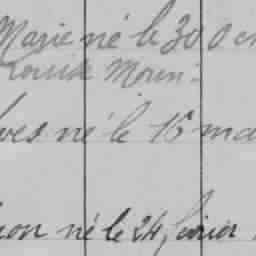 Marie né le 30 Oc
Louise Morin
ves né le 15 ma
non né le 24 février